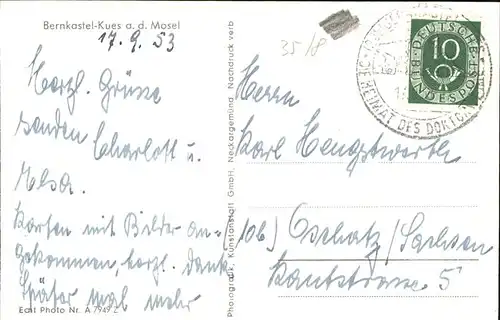 Bernkastel-Kues a. d. Mosel
17.9.53
Herzl. Grüsse
senden
Charlott u.
Elsa.
Karten mit Bilder an-
gekommen, herzl. Dank
Später mal mehr
East Photo Nr. A 7949 Z
Photografik, Kunstanstalt GmbH, Neckargemünd, Nachdruck verb
35/8
DEUTSCHE
BUNDESPOST
10
HEIMAT DES DOKTOR
Herrn
Karl Hengstwerth
(10b) Oschatz/Sachsen
Kantstrasse 5